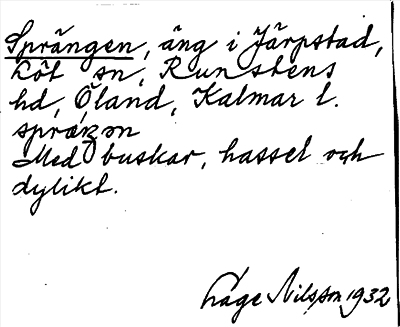 Sprängen, äng i Järpstad,
Löt sn, Runstens
hd, Öland, Kalmar l.
spräŋən
Med buskar, hassel och
dylikt.
Åge Nilsson 1932